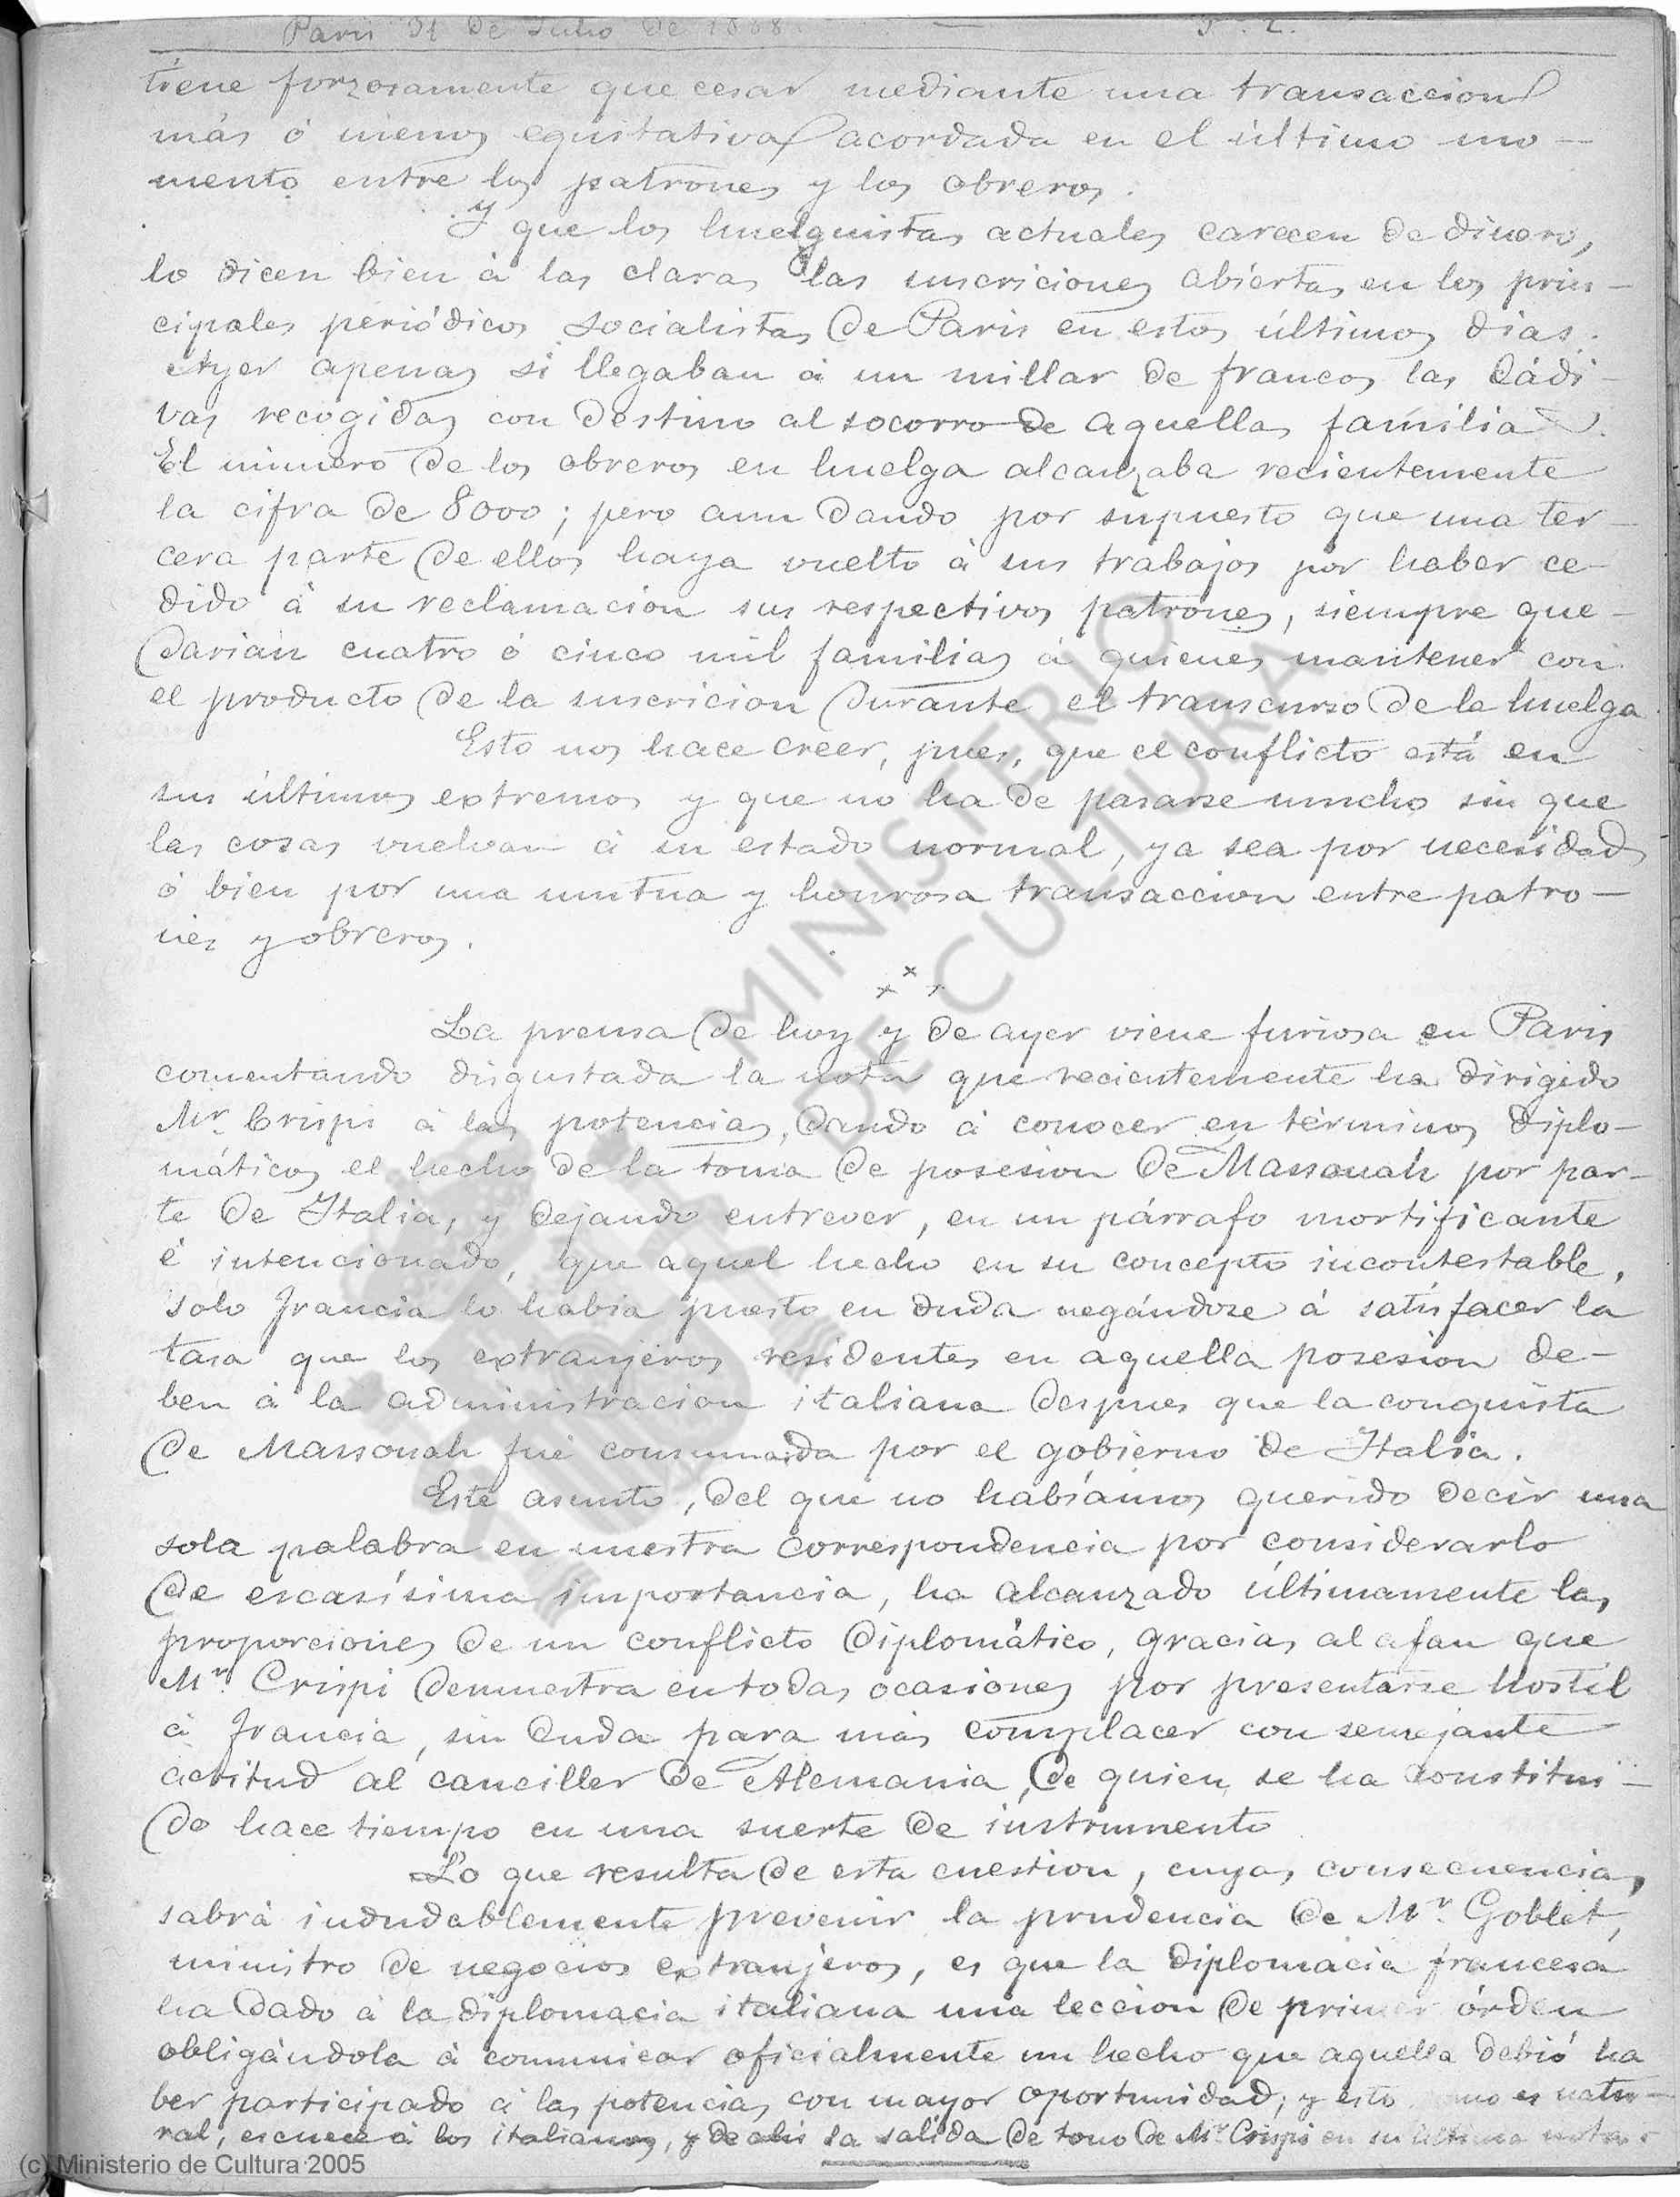 Paris 31 de Julio de 1888. — P. 2.
tiene forzosamente que cesar mediante una transaccion
más ó menos equitativa acordada en el último mo-
mento entre los patrones y los obreros.
Y que los huelguistas actuales carecen de dinero,
lo dicen bien à las claras las suscriciones abiertas en los prin-
cipales periódicos socialistas de Paris en estos últimos dias.
Ayer apenas si llegaban à un millar de francos las dádi-
vas recogidas con destino al socorro de aquellas familias.
El número de los obreros en huelga alcanzaba recientemente
la cifra de 8000; pero aun dando por supuesto que una ter-
cera parte de ellos haya vuelto à sus trabajos por haber ce-
dido à su reclamacion sus respectivos patrones, siempre que-
darian cuatro ó cinco mil familias à quienes mantener con
el producto de la suscricion durante el transcurso de la huelga.
Esto nos hace creer, pues, que el conflicto está en
sus últimos extremos y que no ha de pasarse mucho sin que
las cosas vuelvan à su estado normal, ya sea por necesidad
ó bien por una mutua y honrosa transaccion entre patro-
nes y obreros.
x x x
La prensa de hoy y de ayer viene furiosa en Paris
comentando disgustada la nota que recientemente ha dirigido
Mr. Crispi à las potencias, dando à conocer en términos diplo-
máticos el hecho de la toma de posesion de Massouah por par-
te de Italia, y dejando entrever, en un párrafo mortificante
é intencionado, que aquel hecho en su concepto incontestable,
solo Francia lo habia puesto en duda negándose á satisfacer la
tasa que los extranjeros residentes en aquella posesion de-
ben à la administracion italiana despues que la conquista
de Massouah fué consumada por el gobierno de Italia.
Este asunto, del que no habíamos querido decir una
sola palabra en nuestra correspondencia por considerarlo
de escasísima importancia, ha alcanzado últimamente las
proporciones de un conflicto diplomático, gracias al afan que
Mr. Crispi demuestra en todas ocasiones por presentarse hostil
à Francia, sin duda para más complacer con semejante
actitud al canciller de Alemania, de quien se ha constitui-
do hace tiempo en una suerte de instrumento
Lo que resulta de esta cuestion, cuyas consecuencias,
sabrá indudablemente prevenir la prudencia de Mr. Goblet,
ministro de negocios extranjeros, es que la diplomacia francesa
ha dado à la diplomacia italiana una leccion de primer órden
obligándola à comunicar oficialmente un hecho que aquella debió ha
ber participado à las potencias con mayor oportunidad; y esto como es natu-
ral, escuece à los italianos, y de ahi la salida de tono de Mr. Crispi en su última nota.
MINISTERIO
DE CULTURA
(c) Ministerio de Cultura 2005